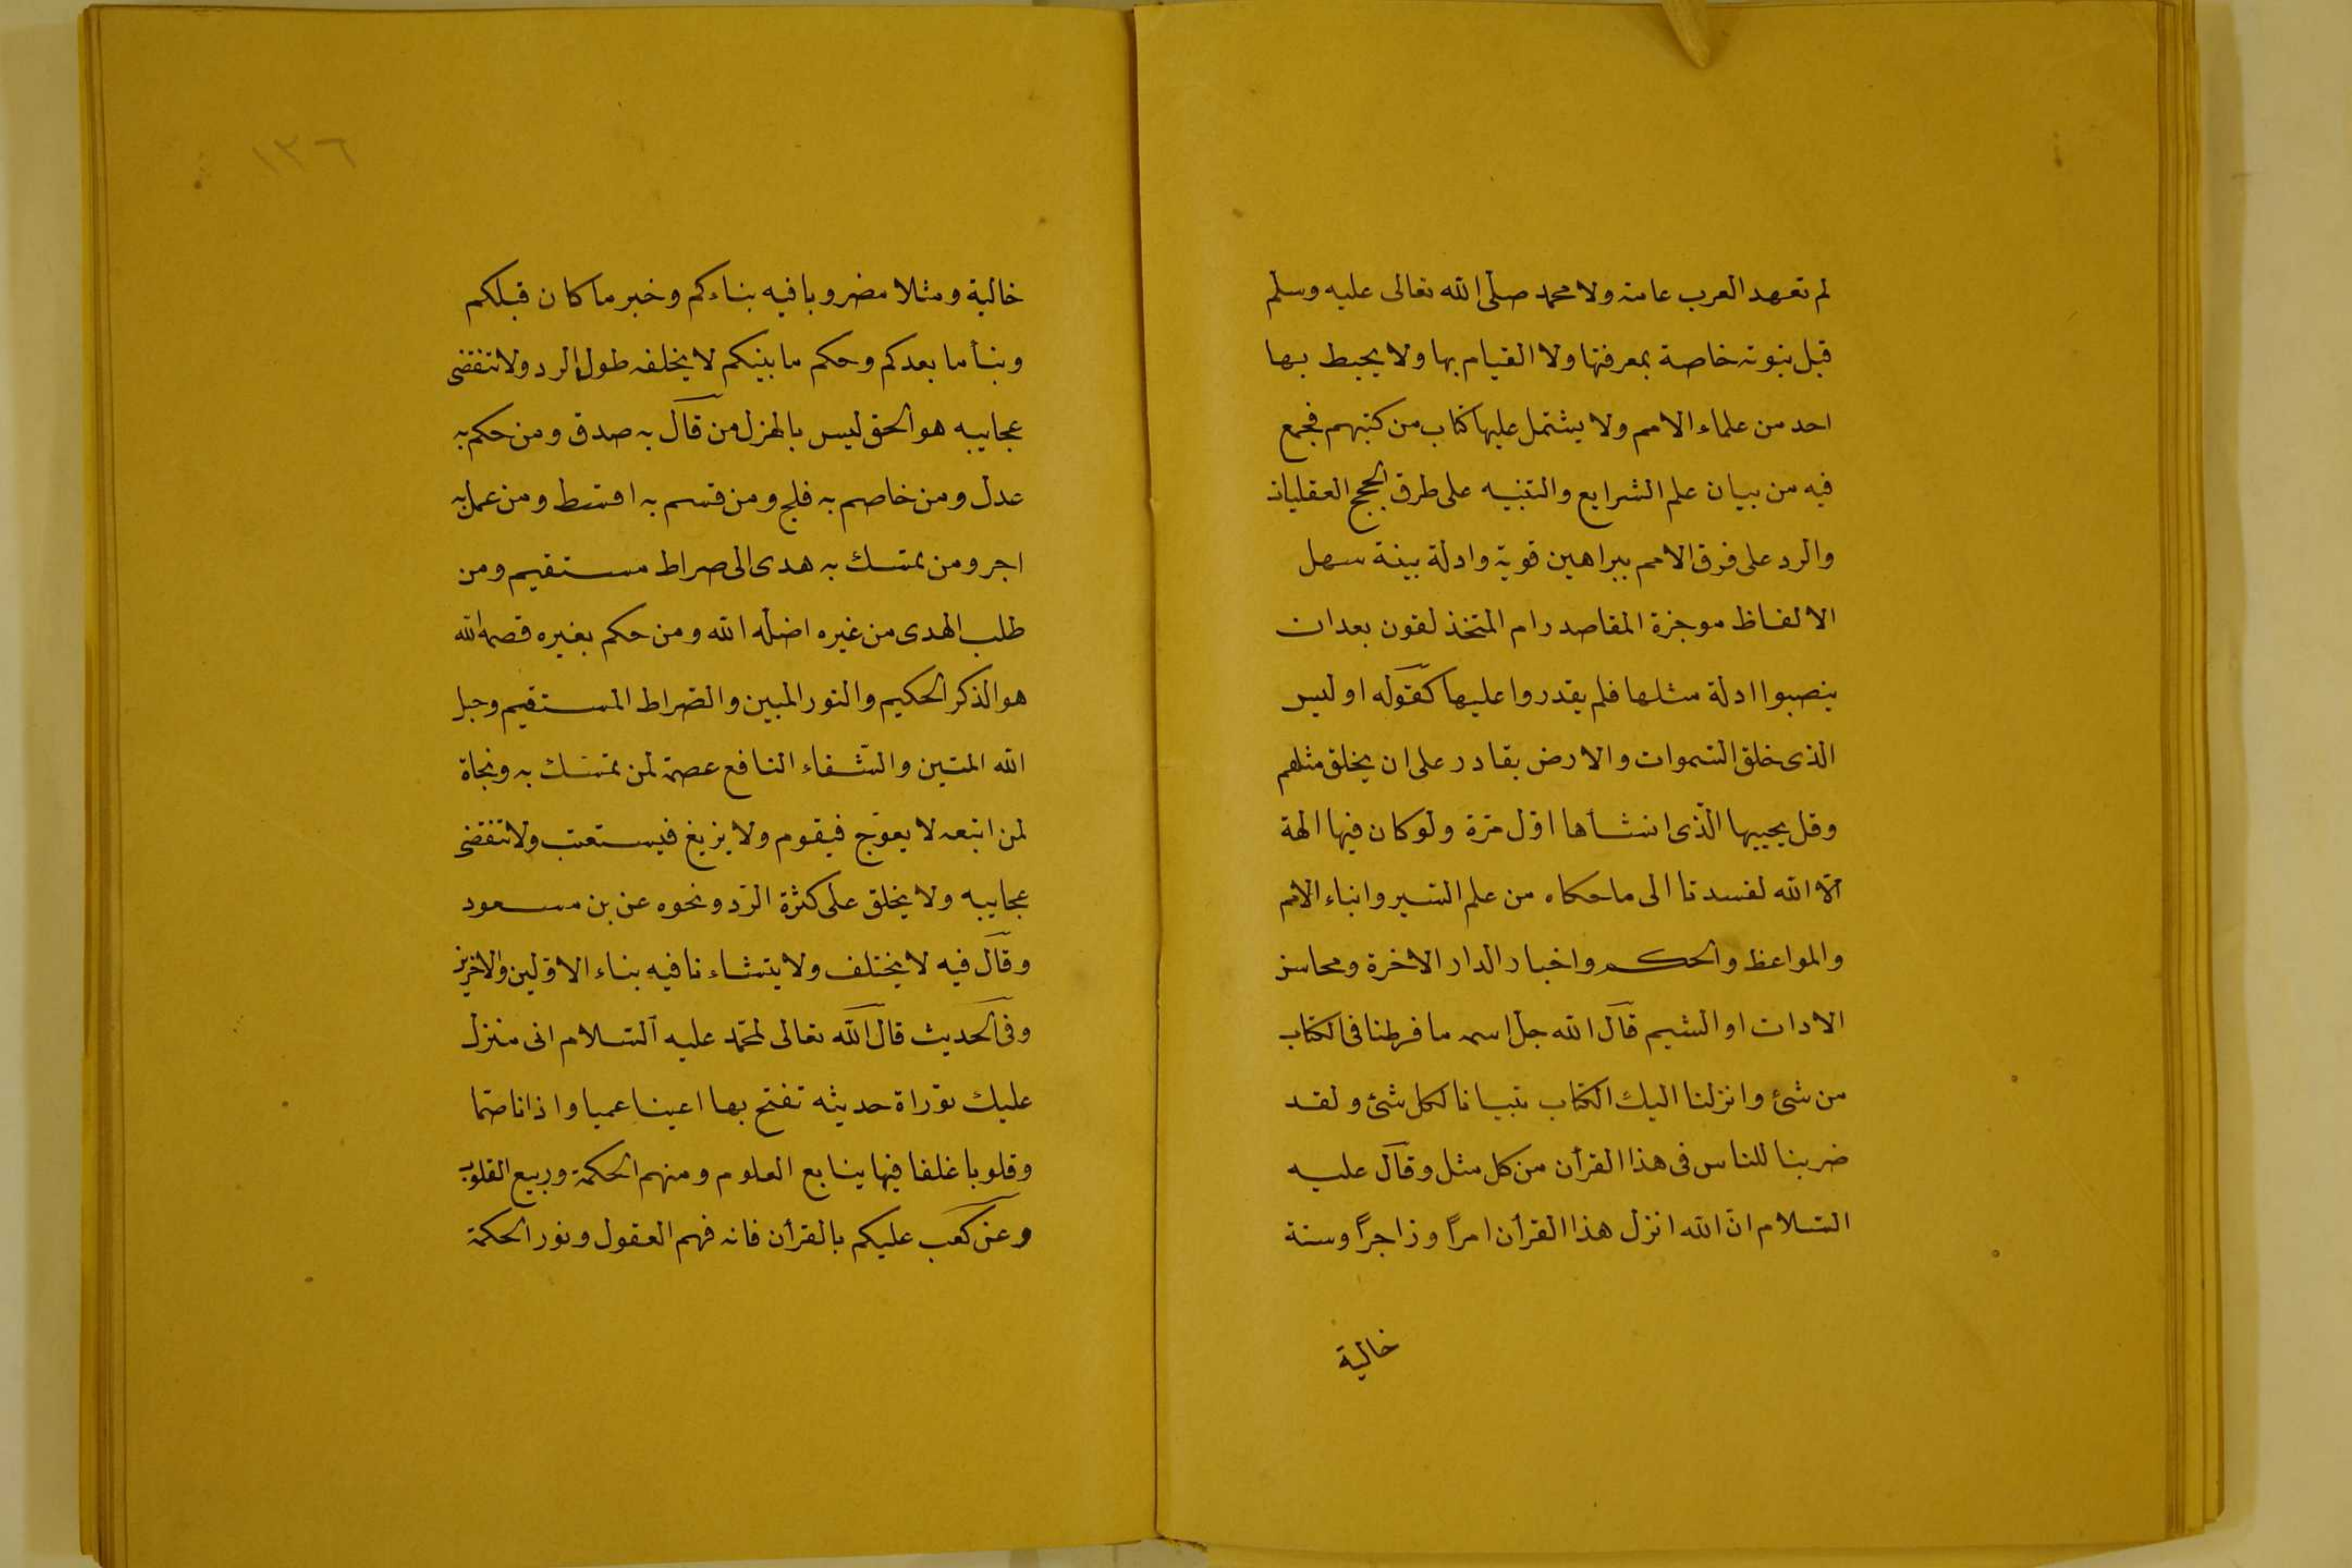 لم تعهد العرب عامة ولا محمد صلى الله تعالى عليه وسلم
قبل نبوته خاصة بمعرفتها ولا القيام بها ولا يحيط بها
احد من علماء الامم ولا يشتمل عليها كتاب من كتبهم فجمع
فيه من بيان علم الشرايع والتنبيه على طرق الحجج العقليات
والرد على فرق الامم ببراهين قوية وادلة بينة سهل
الالفاظ موجزة المقاصد رام المتخذلقون بعدان
ينصبوا ادلة مثلها فلم يقدروا عليها كقوله اوليس
الذى خلق السموات والارض بقادر على ان يخلق مثلهم
وقل يحييها الذى انشأها اول مرة ولو كان فيها الهة
الا الله لفسدتا الى ما حكاه من علم السير وانباء الامم
والمواعظ والحكم واخبار الدار الاخرة ومحاسن
الادات او الشيم قال الله جل اسمه ما فرطنا فى الكتاب
من شئ وانزلنا اليك الكتاب تبيانا لكل شئ ولقد
ضربنا للناس فى هذا القرأن من كل مثل وقال عليه
السلام ان الله انزل هذا القرأن امراً وزاجراً وسنة
خالية
١٣٦
خالية ومثلا مضروبا فيه بناءكم وخبر ما كان قبلكم
ونبأ ما بعدكم وحكم ما بينكم لا يخلفه طول الرد ولا تنقضى
عجايبه هو الحق ليس بالهزل من قال به صدق ومن حكم به
عدل ومن خاصم به فلج ومن قسم به اقسط ومن عمل به
اجر ومن تمسك به هدى الى صراط مستقيم ومن
طلب الهدى من غيره اضله الله ومن حكم بغيره قصمه الله
هو الذكر الحكيم والنور المبين والصراط المستقيم وحبل
الله المتين والشفاء النافع عصمة لمن تمسك به ونجاة
لمن اتبعه لا يعوّج فيقوم ولا يزيغ فيستعتب ولا تنقضى
عجايبه ولا يخلق على كثرة الرد ونحوه عن بن مسعود
وقال فيه لا يختلف ولا يتشاءنا فيه بناء الاولين والاخرين
وفى الحديث قال الله تعالى لمحمد عليه السلام انى منزل
عليك توراة حديثه تفتح بها اعينا عميا واذانا صما
وقلوبا غلفا فيها ينابع العلوم ومنهم الحكمة وربيع القلوب
وعن كعب عليكم بالقرأن فانه فهم العقول ونور الحكمة